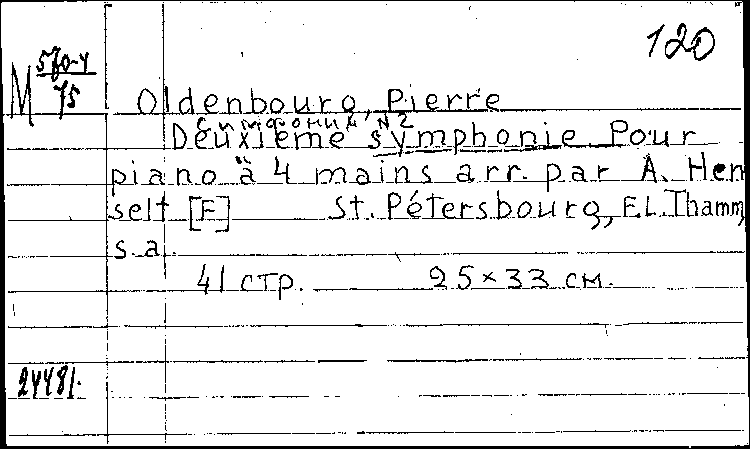 120
M 570-4
75
Oldenbourg, Pierre
Симфония, N2
Deuxième symphonie Pour
piano à 4 mains arr. par A. Hen
selt [F] St. Pétersbourg, F.L. Thamm,
s.a.
41 стр. 25×33 см.
24481.